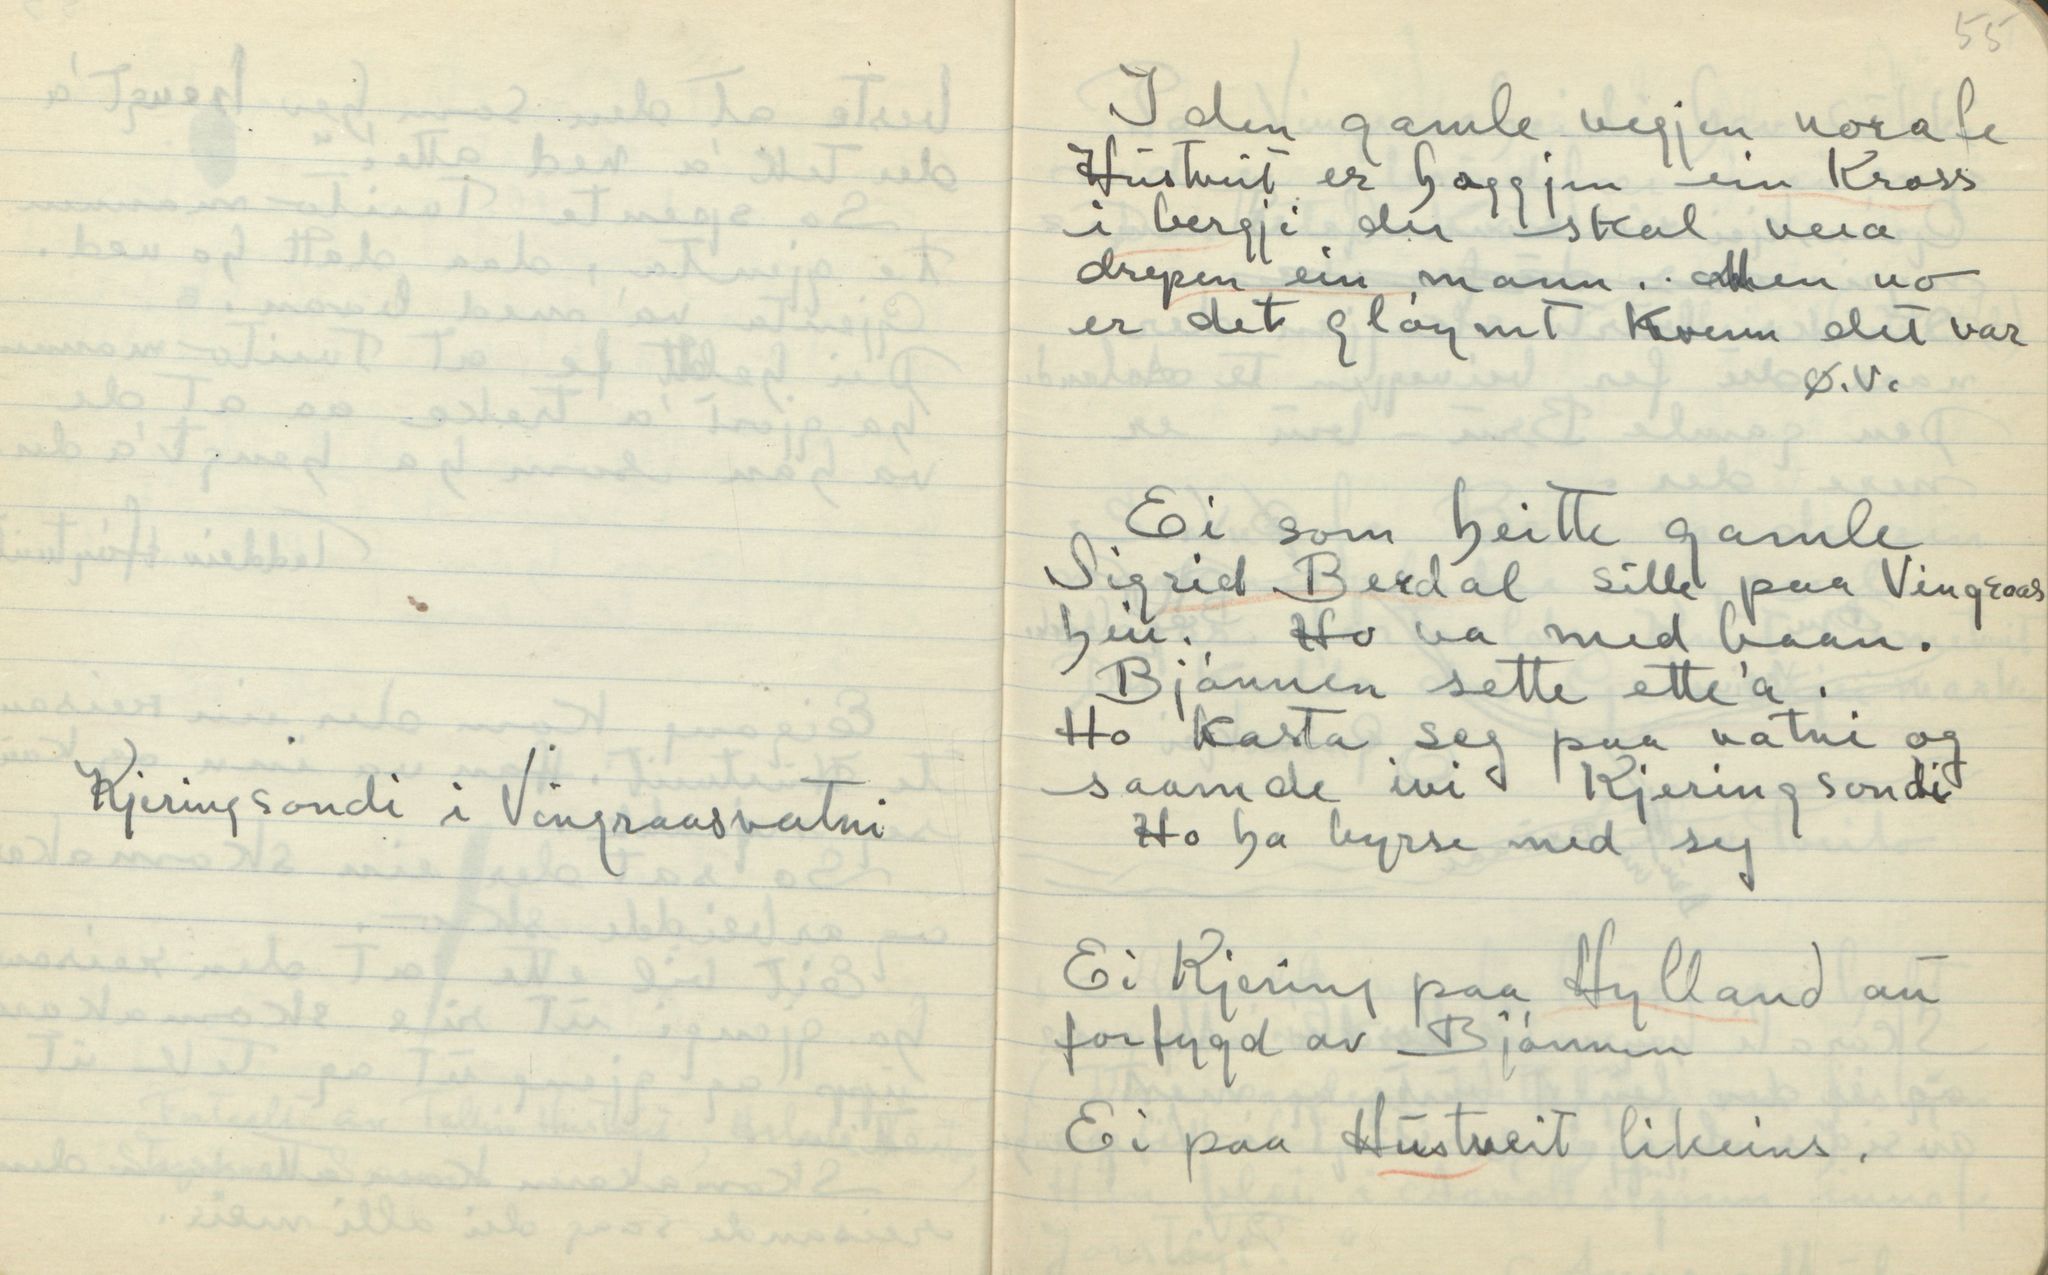 Kjeringsondi i Vingraasvatni
55
I den gamle vegjen norafe
Hústveit er hoggjen ein Kross
i bergji der skal vera
drepen ein mann. Men no
er det gløymt Kvenn det var
Ø.V.
Ei som heitte gamle
Sigrid Berdal sille paa Vingraas
hei. Ho va med baan.
Bjønnen sette ette'a.
Ho Kasta seg paa vatni og
saamde ivi Kjeringsondi
Ho ha byrse med seg
Ei Kjering paa Hylland aú
forfygd av Bjønnen
Ei paa Hústveit likeins.